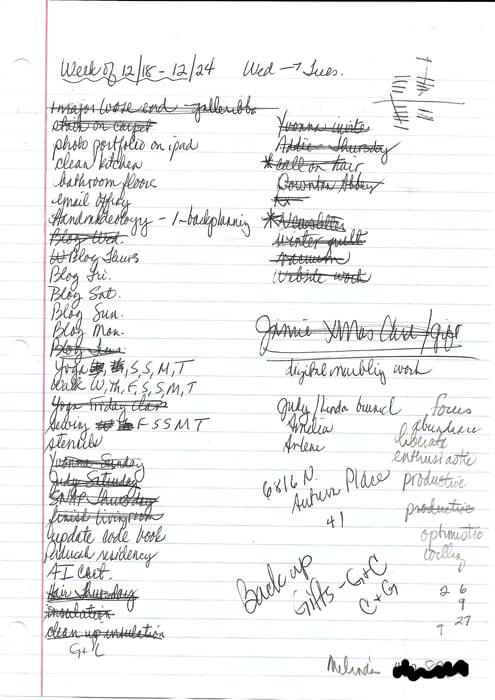 Week of 12/18 - 12/24 Wed → Tues.
1 major loose end
stain on carpet
photo portfolio on ipad
clean kitchen
bathroom floors
email
- 1 - backplanning
Blog Wed.
Blog Thurs
Blog Fri.
Blog Sat.
Blog Sun.
Blog Mon.
Blog Tues
Yoga W, Th, S, S, M, T
W, Th, F, S, S, M, T
Yoga Friday class
Sewing F S S M T
stencils
Yvonne Sunday
Judy Saturday
SNAP Thursday
finish livingroom
update code book
residency
AI Cart.
Hair Thursday
insulation
clean up insulation
G+C
Yvonne invite
Addie - Thursday
*call on hair
Downton Abbey
*Newsletter
winter quilt
Vacuum
Website work
Jamie XMas Card/gift
digital marbling work
Judy/Linda brunch
Amelia
Arlene
6816 N.
Autumn Place
41
focus
abundance
liberate
enthusiastic
productive
productive
optimistic
Back up
Gifts - G+C
C+G
2 6
9
27
9
Melinda